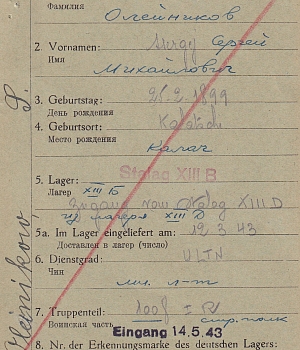 Фамилия
Олейников
2 Vornamen: Sergej Сергей
Имя
Михайлович
3. Geburtstag: 26.2.1899
День рождения
4. Geburtsort: Kalatsch
Место рождения
Калач
5. Lager: Stalag XIII B
Лагерь XIII Б
Zugang vom Stalag XIII D
из лагеря XIII Д
5a. Im Lager eingeliefert am: 12.3.43
Доставлен в лагерь (число)
6. Dienstgrad: ULTN
Чин
мл. л-т
7. Truppenteil: 1008 I R
Воинская часть стр. полк
Eingang 14.5.43
8. Nr. der Erkennungsmarke des deutschen Lagers:
Oleinikow, S.